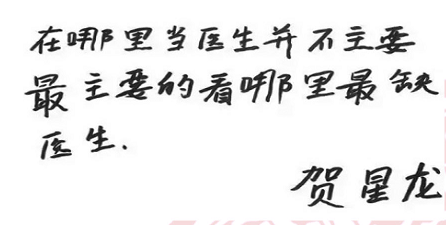 在哪里当医生并不主要
最主要的看哪里最缺
医生.
贺星龙